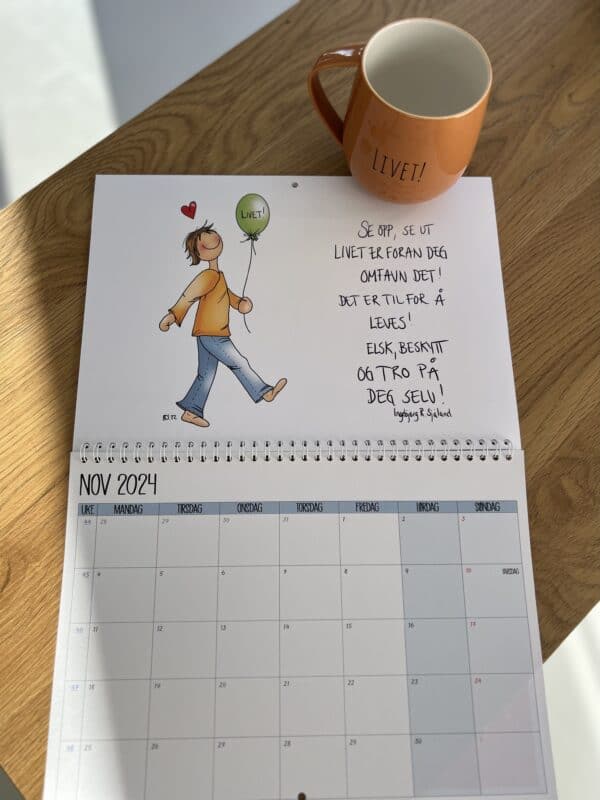 LIVET!
LIVET!
SE OPP, SE UT
LIVET ER FORAN DEG
OMFAVN DET!
DET ER TIL FOR Å
LEVES!
ELSK, BESKYTT
OG TRO PÅ
DEG SELV!
Ingebjørg R. Sjøland
NOV 2024
UKE MANDAG TIRSDAG ONSDAG TORSDAG FREDAG LØRDAG SØNDAG
44 28 29 30 31 1 2 3
45 4 5 6 7 8 9 10 FARSDAG
46 11 12 13 14 15 16 17
47 18 19 20 21 22 23 24
48 25 26 27 28 29 30